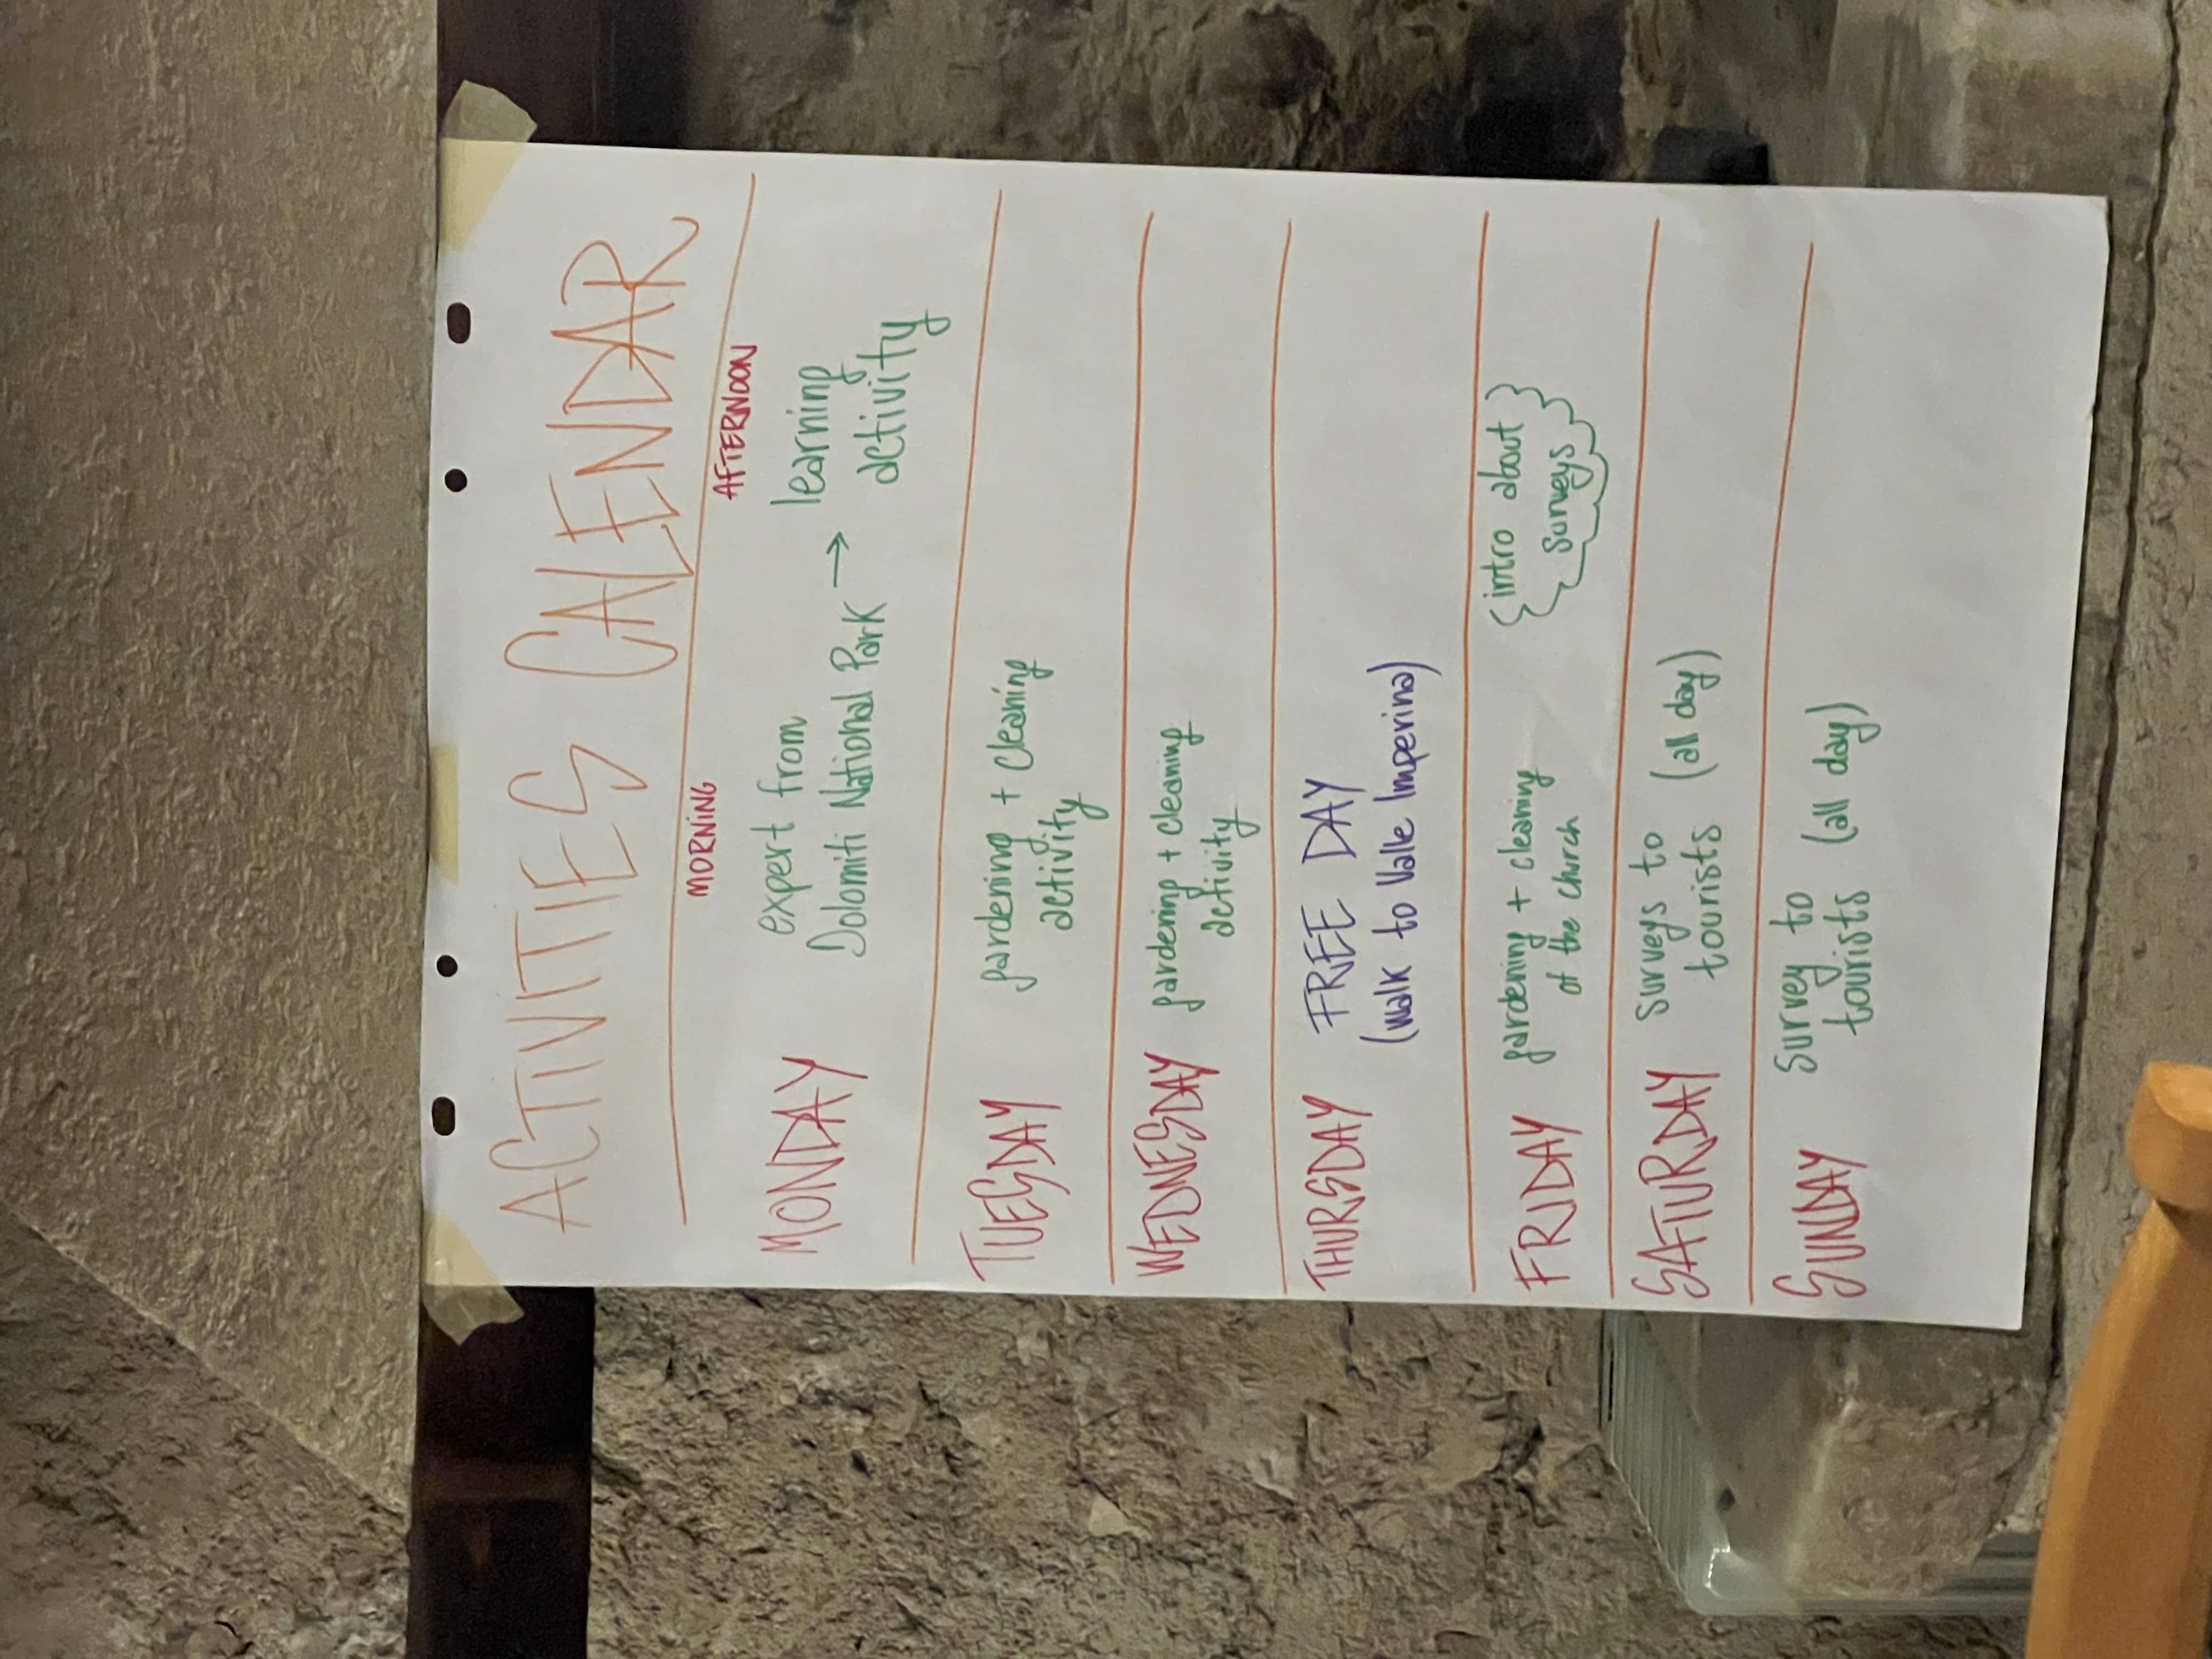 ACTIVITIES CALENDAR
MORNING AFTERNOON
MONDAY expert from learning
Dolomiti National Park → activity
TUESDAY gardening + cleaning
activity
WEDNESDAY gardening + cleaning
activity
THURSDAY FREE DAY
(walk to Valle Imperina)
FRIDAY gardening + cleaning {intro about}
of the church {surveys}
SATURDAY surveys to
tourists (all day)
SUNDAY survey to
tourists (all day)